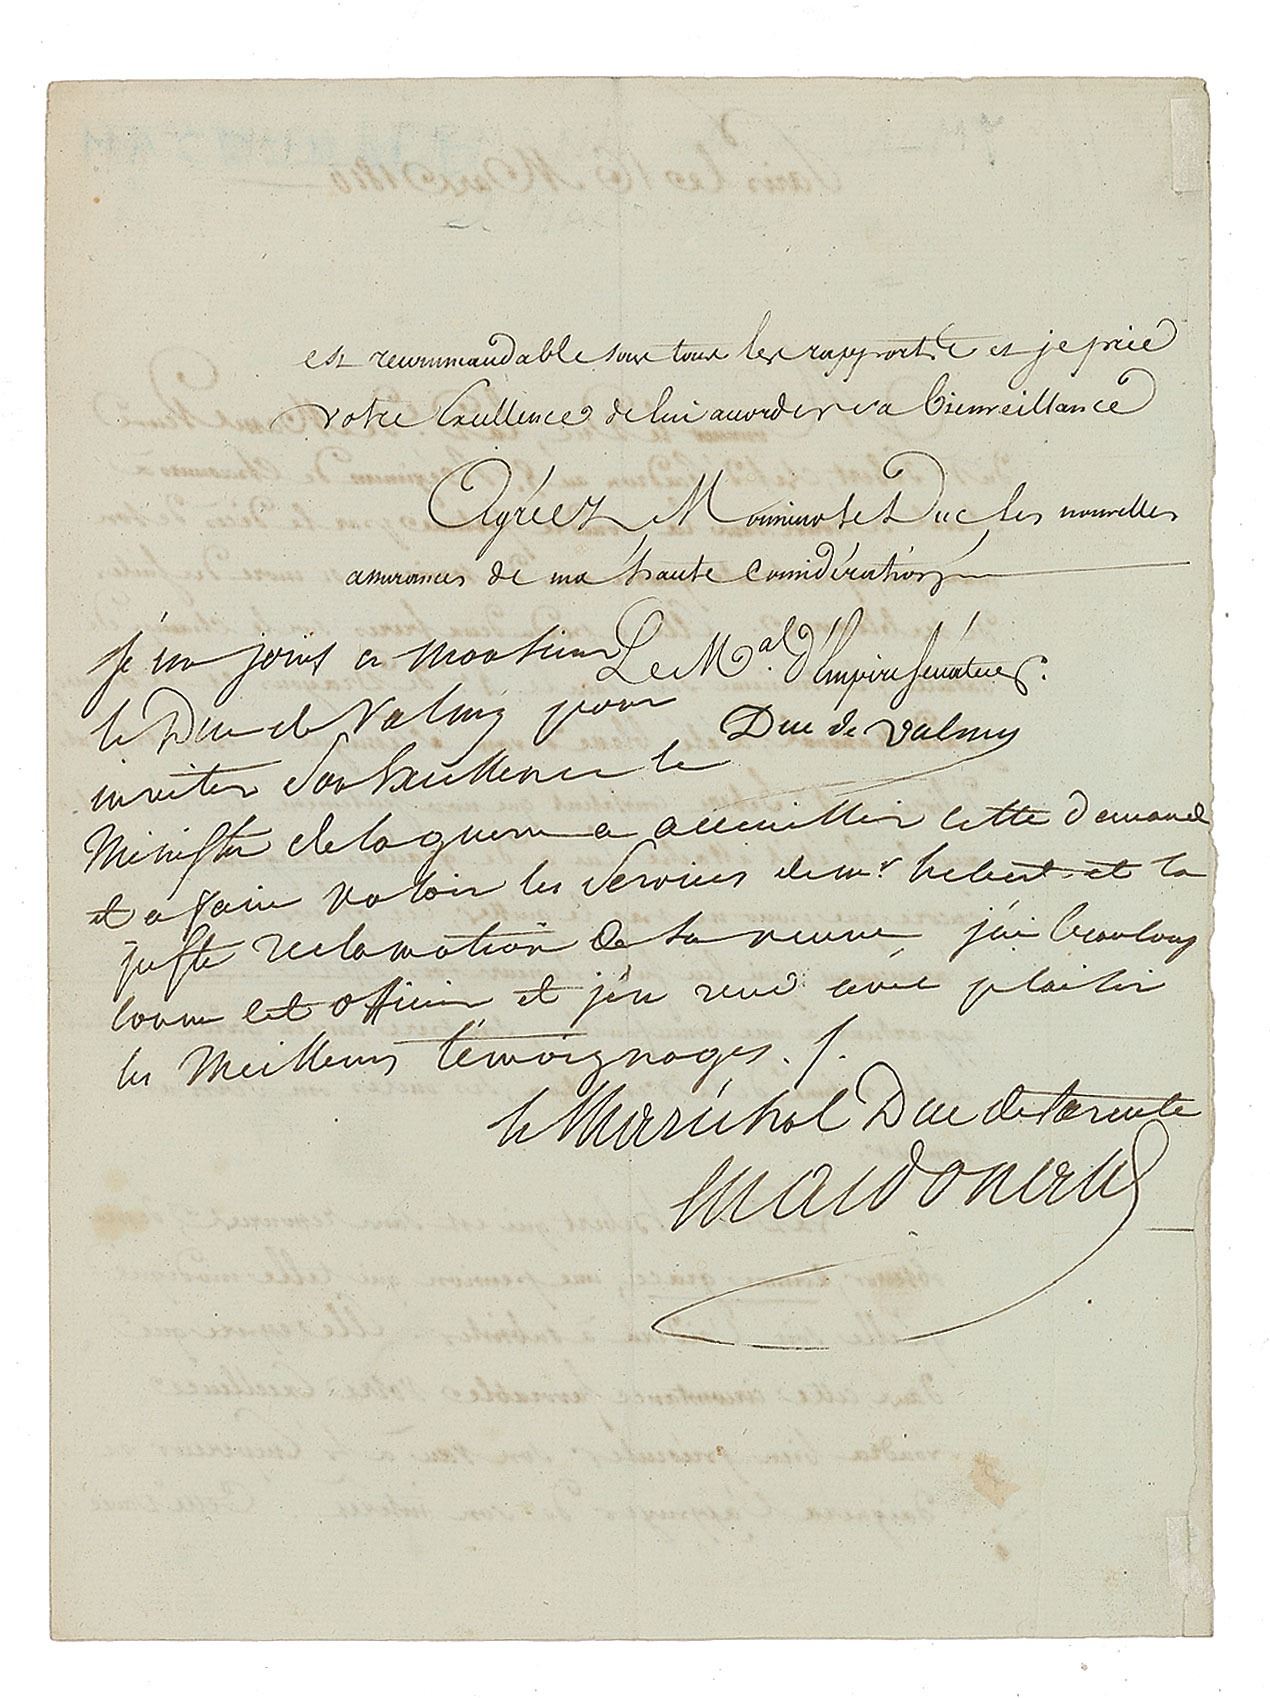 est recommandable sous tous les rapports et je prie
Votre Excellence de lui accorder sa bienveillance
Agréez Monsieur le Duc les nouvelles
assurances de ma haute considération
Le Mal. d'Empire Senateur.
Duc de Valmy
Je me joins a Monsieur
le Duc de Valmy pour
inviter Son Excellence le
Ministre de la guerre a accueillir cette demande
et a faire valoir les Services de mr. hebert et la
juste reclamation de sa veuve j'ai beaucoup
connu cet officier et j'en rend avec plaisir
les Meilleurs témoignages ./.
le Maréchal Duc de tarente
Macdonald